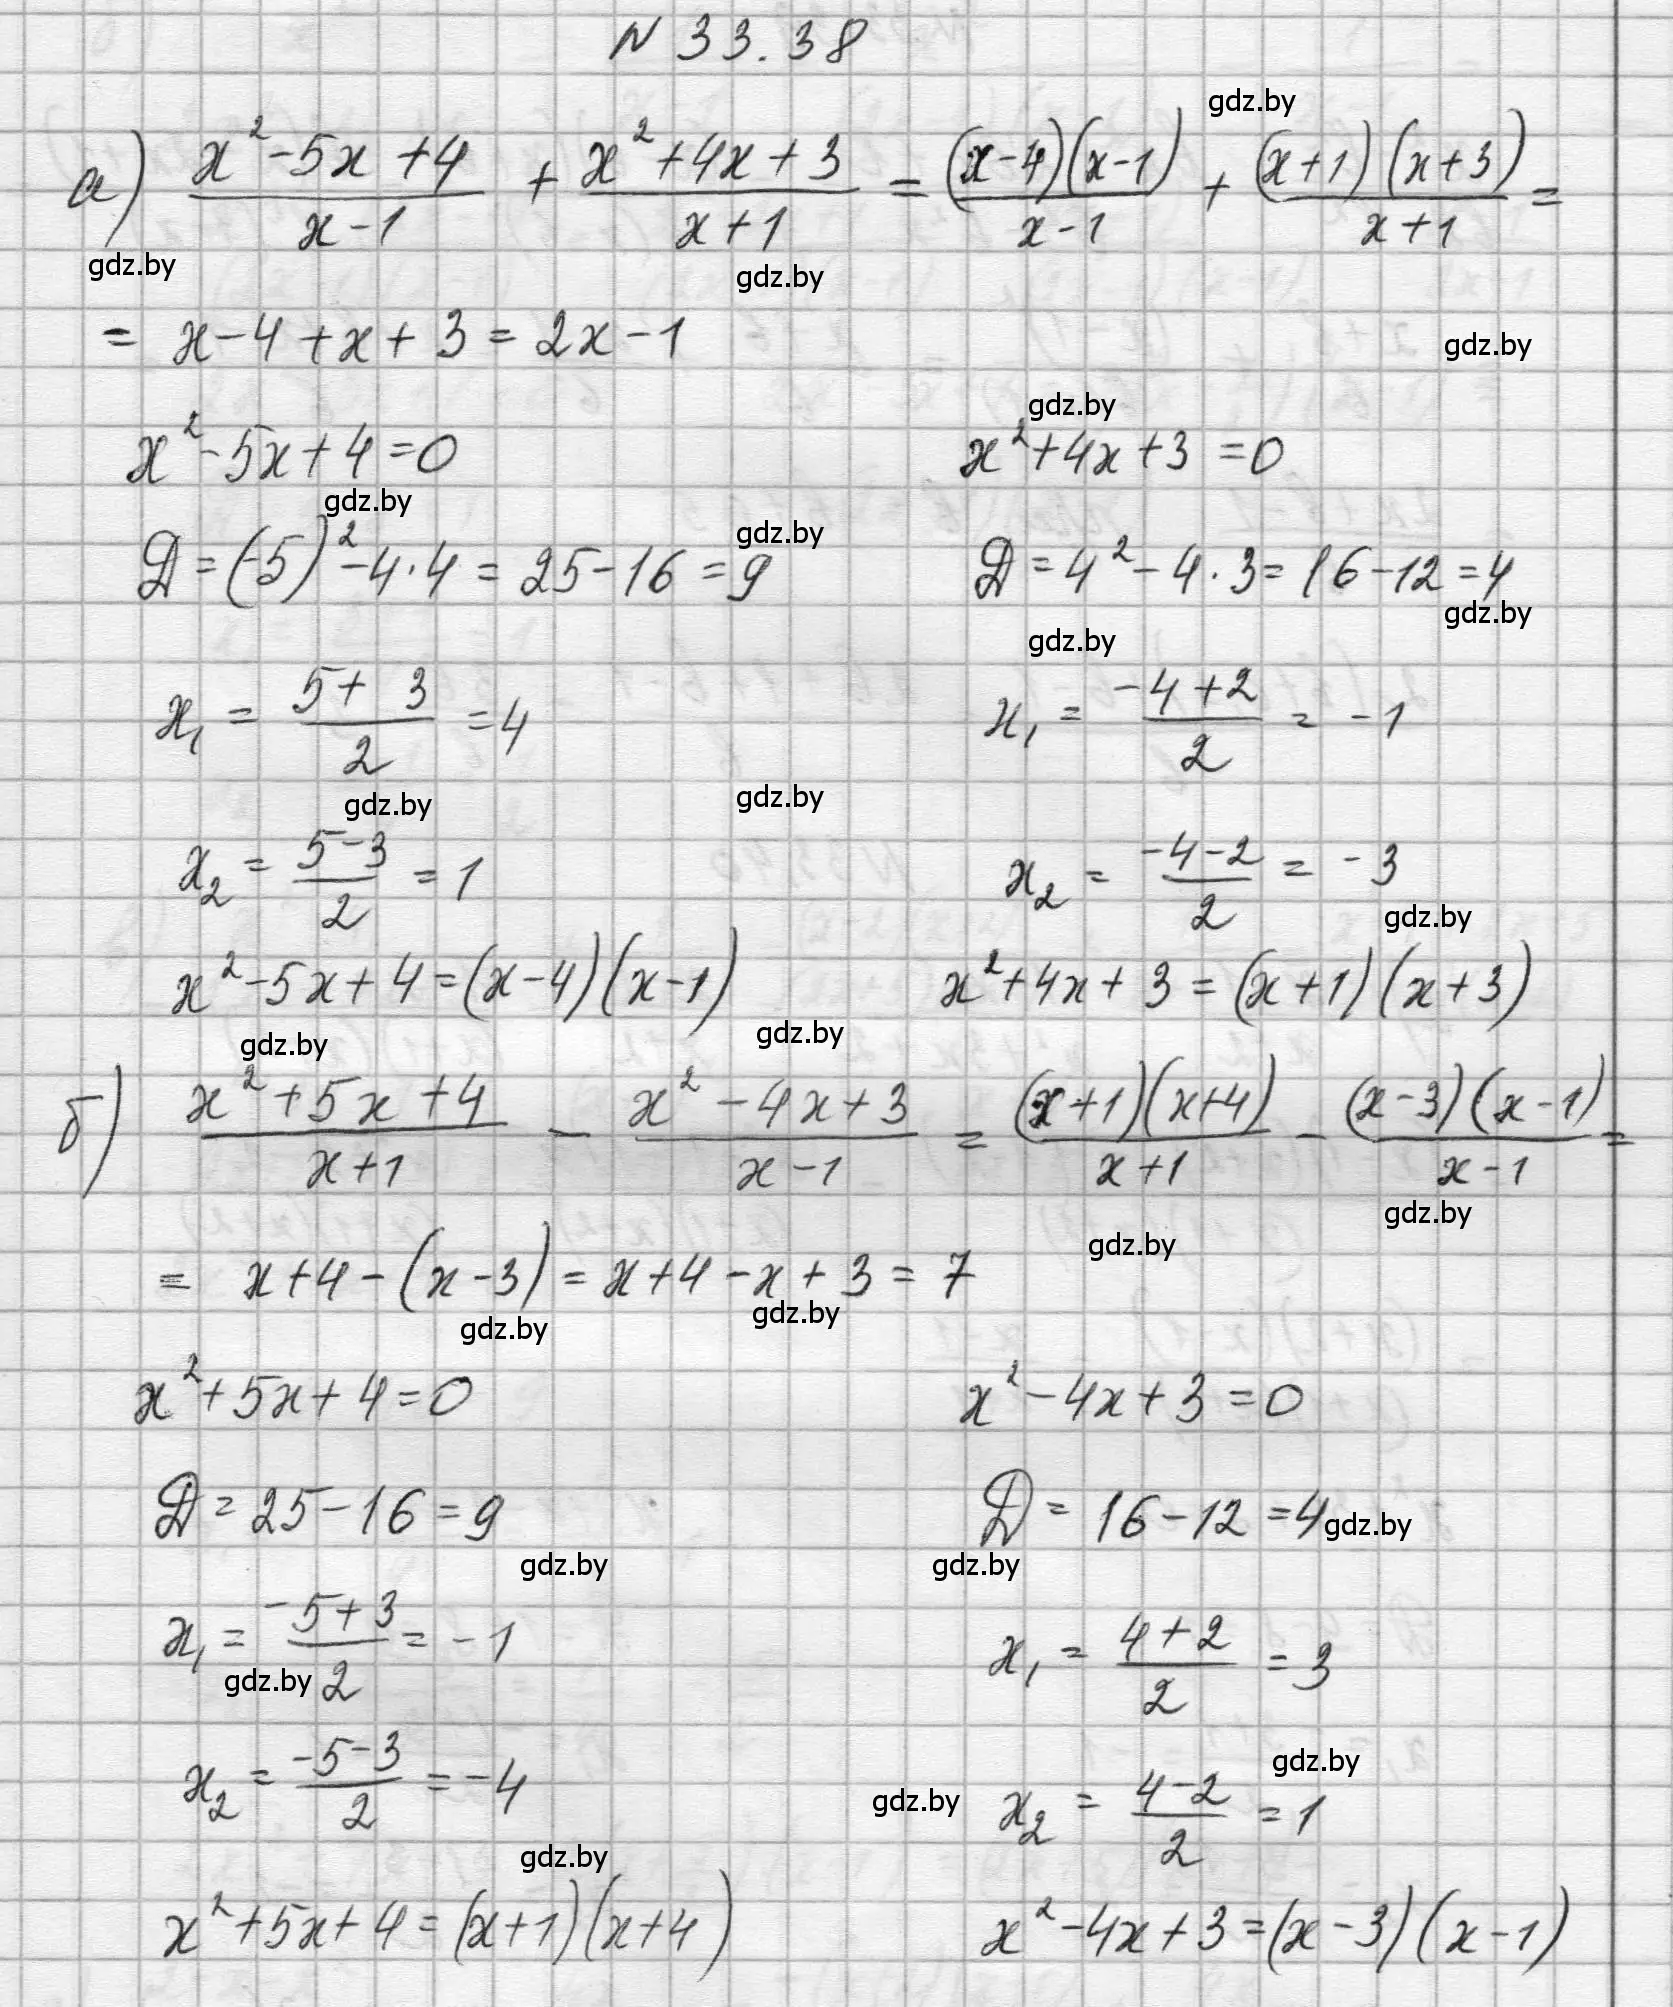 N 33.38
gdz.by
а) (x² - 5x + 4)/(x - 1) + (x² + 4x + 3)/(x + 1) = ((x - 4)(x - 1))/(x - 1) + ((x + 1)(x + 3))/(x + 1) =
gdz.by gdz.by
= x - 4 + x + 3 = 2x - 1 gdz.by
gdz.by
x² - 5x + 4 = 0 x² + 4x + 3 = 0
gdz.by gdz.by
D = (-5)² - 4·4 = 25 - 16 = 9 D = 4² - 4·3 = 16 - 12 = 4
gdz.by gdz.by
x₁ = (5 + 3)/2 = 4 x₁ = (-4 + 2)/2 = -1
gdz.by gdz.by
x₂ = (5 - 3)/2 = 1 x₂ = (-4 - 2)/2 = -3
gdz.by
x² - 5x + 4 = (x - 4)(x - 1) x² + 4x + 3 = (x + 1)(x + 3)
gdz.by gdz.by
б) (x² + 5x + 4)/(x + 1) - (x² - 4x + 3)/(x - 1) = ((x + 1)(x + 4))/(x + 1) - ((x - 3)(x - 1))/(x - 1) =
gdz.by gdz.by
= x + 4 - (x - 3) = x + 4 - x + 3 = 7
gdz.by gdz.by
x² + 5x + 4 = 0 x² - 4x + 3 = 0
D = 25 - 16 = 9 D = 16 - 12 = 4 gdz.by
gdz.by gdz.by
x₁ = (-5 + 3)/2 = -1 x₁ = (4 + 2)/2 = 3
gdz.by
x₂ = (-5 - 3)/2 = -4 gdz.by x₂ = (4 - 2)/2 = 1 gdz.by
gdz.by
x² + 5x + 4 = (x + 1)(x + 4) x² - 4x + 3 = (x - 3)(x - 1)